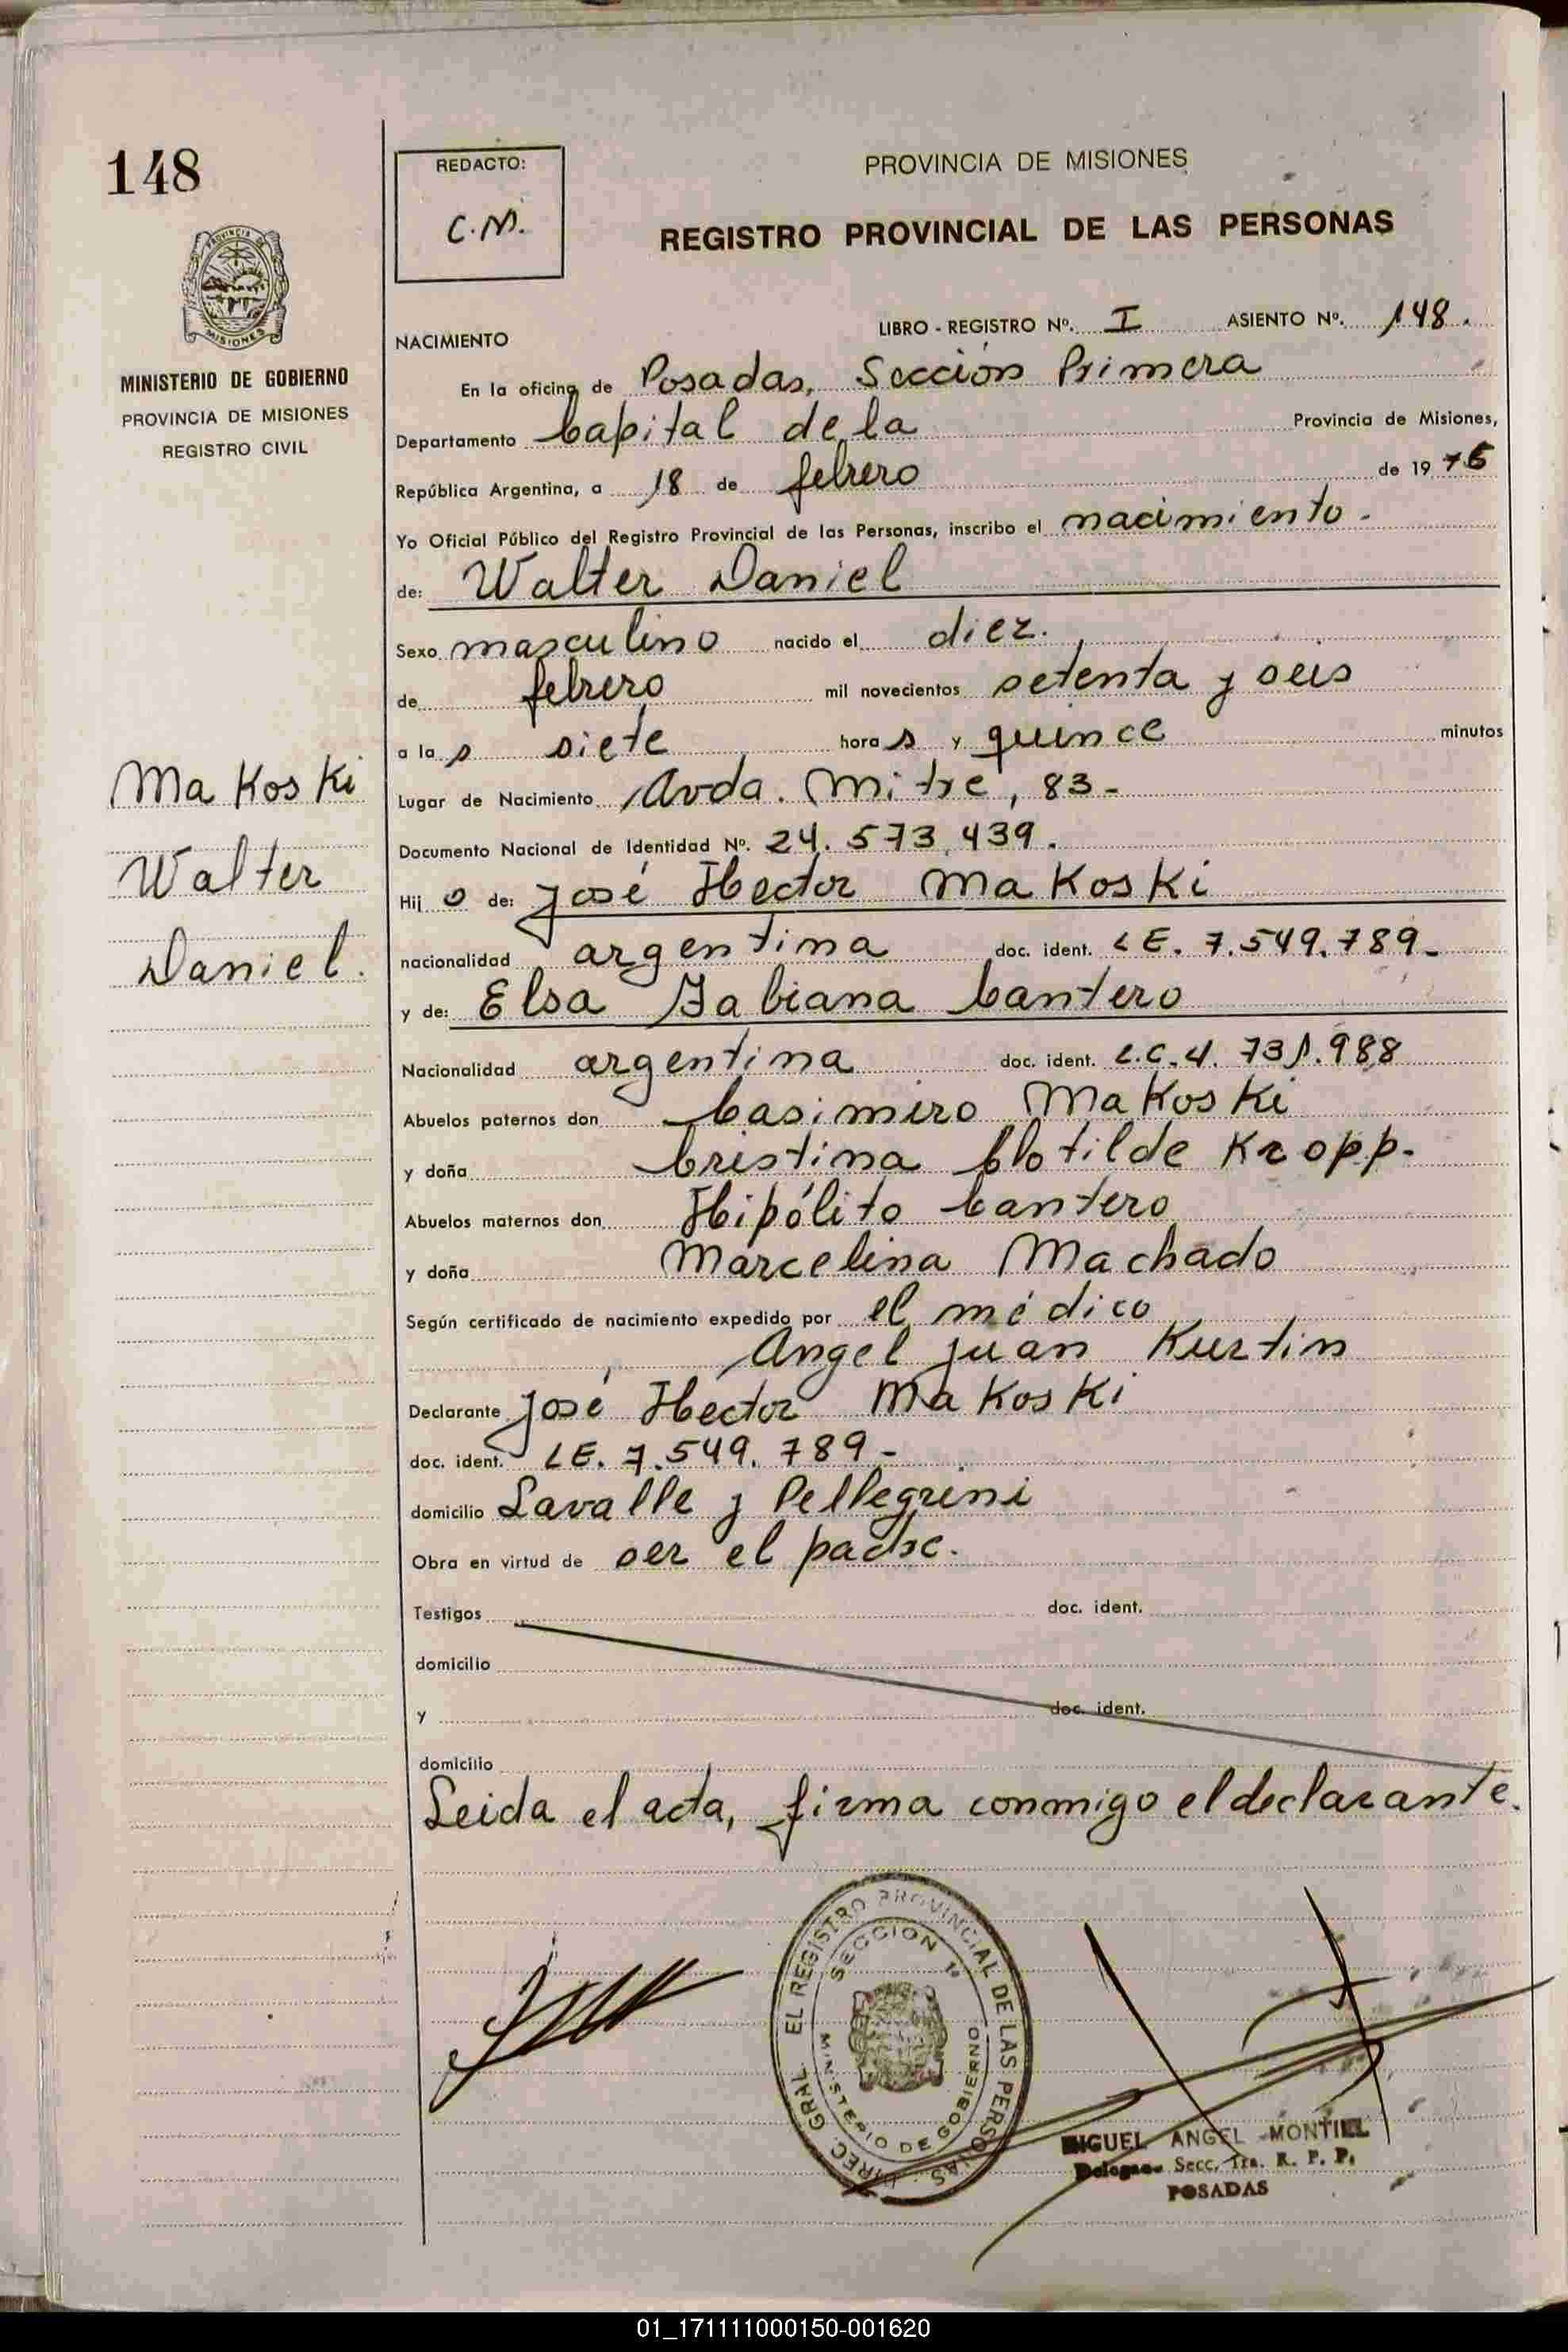 148
REDACTO:
C.M.
PROVINCIA DE MISIONES
REGISTRO PROVINCIAL DE LAS PERSONAS
PROVINCIA DE
MISIONES
MINISTERIO DE GOBIERNO
PROVINCIA DE MISIONES
REGISTRO CIVIL
NACIMIENTO
LIBRO - REGISTRO Nº. I ASIENTO Nº. 148.
En la oficina de Posadas, Sección Primera
Departamento Capital de la Provincia de Misiones,
República Argentina, a 18 de febrero de 19 76
Yo Oficial Público del Registro Provincial de las Personas, inscribo el nacimiento.
de: Walter Daniel
Sexo masculino nacido el diez.
de febrero mil novecientos setenta y seis
a la s siete hora s y quince minutos
Makoski
Walter
Daniel.
Lugar de Nacimiento Avda. Mitre, 83-
Documento Nacional de Identidad Nº. 24.573.439.
Hij o de: José Hector Makoski
nacionalidad argentina doc. ident. LE. 7.549.789-
y de: Elsa Fabiana Cantero
Nacionalidad argentina doc. ident. L.C.4.731.988
Abuelos paternos don Casimiro Makoski
y doña Cristina Clotilde Kropp.
Abuelos maternos don Hipólito Cantero
y doña Marcelina Machado
Según certificado de nacimiento expedido por el médico
Angel Juan Kurtin
Declarante José Hector Makoski
doc. ident. LE. 7.549.789-
domicilio Lavalle y Pellegrini
Obra en virtud de ser el padre.
Testigos doc. ident.
domicilio
y doc. ident.
domicilio
Leida el acta, firma conmigo el declarante.
DIREC. GRAL. EL REGISTRO PROVINCIAL DE LAS PERSONAS
SECCION 1ª
MINISTERIO DE GOBIERNO
MIGUEL ANGEL MONTIEL
Delegado Secc. 1ra. R. P. P.
POSADAS
01_171111000150-001620